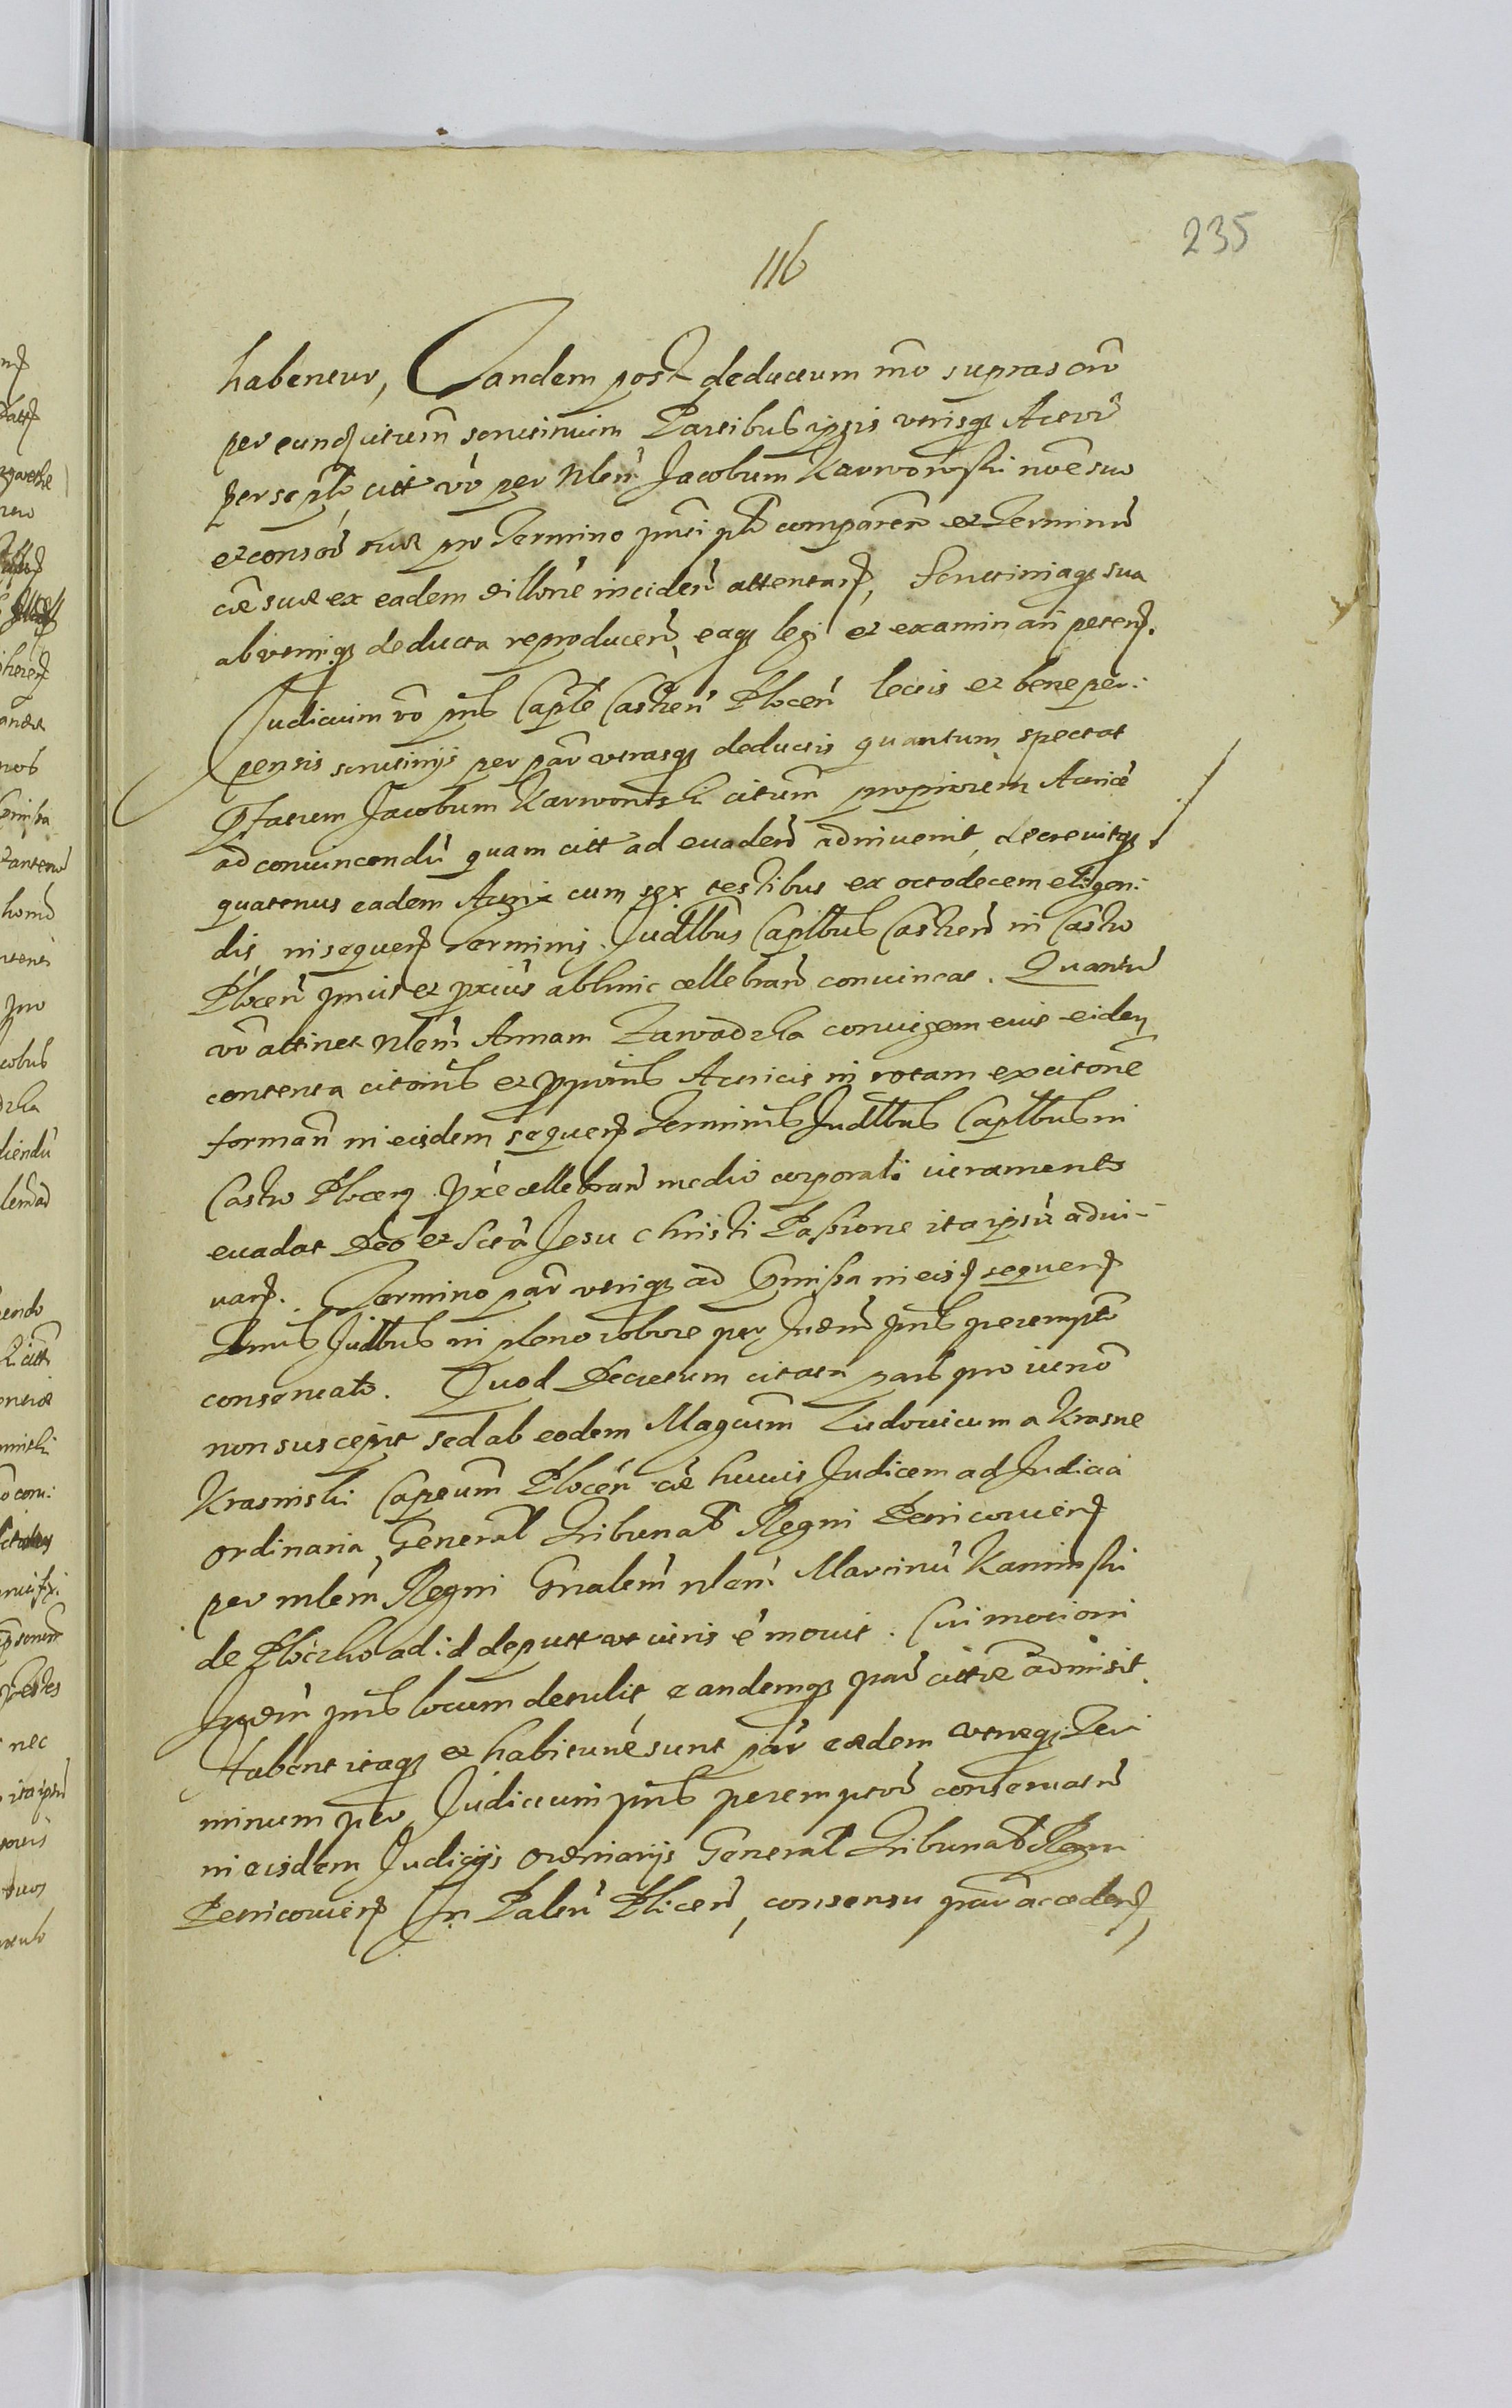 235
116
habentur, Tandem post deductum mo suprascro
per eund citatum scrutinium Partibus ipsis utrisq Actori
per se pto citt vo per Nlem Jacobum Karwowski noe suo
et consor suæ pro Termino pnti pto comparen et Terminu
cæ suæ ex eadem dillone inciden attentan, Scrutiniaq sua
ab utrinq deducta reproducen, eaq legi et examinari peten.
Judicium vo pns Caple Castren Plocen lectis et bene per:
pensis scrutinijs per par utrasq deductis quantum spectat
Pfatum Jacobum Karwowski citum propriorem Actricē
ad convincendu quam citt ad evaden adinvenit, decrevitq
quatenus eadem Actrix cum sex testibus ex octodecem eligen:
dis in sequen Terminis Judlbus Caplbus Castren in Castro
Plocen pmis et pxius abhinc cellebran convincat. Quantu
vo attinet Nlem Annam Zawadzka coniugem eius eidem
contenta citonis et pponis Actricis in rotam ex citone
forman in eisdem sequen Terminis Judlbus Caplbus in
Castro Plocen pxe cellebran medio corporali iuramento
evadat Deo et Scta Jesu Christi Passione ita ipsu adiu-
van. Termino par utriq ad pmissa in eisd sequen
Tmis Judlbus in pleno robore per Judm pns perempto
conservato. Quod Decretum citata pars pro iurno
non suscepit sed ab eodem Magcum Ludovicum a Krasne
Krasinski Capeum Plocen cæ huius Judicem ad Judicia
ordinaria General Tribunal Regni Petricovien
per mlem Regni Gnalem nlem Martinu Kaminski
de Ploczko ad id deputt ut iuris e movit. Cui motioni
Judm pns locum detulit eandemq par cittæ admisit.
Habent itaq et habituræ sunt par eædem utræq Ter
minum per Judicium pns peremptor conservatu
in eisdem Judicijs ordinarijs General Tribunal Regni
Petricovien In Palen Plocen, consensu par acceden,